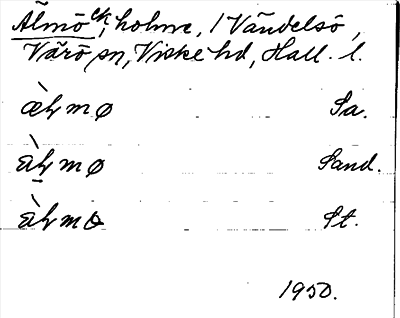 Älmö ek, holme, / Vändelsö,
Värö sn, Viske hd, Hall. l.
æ̀ḷmø Sa.
àḷmø Sand.
àḷmɵ St.
1950.